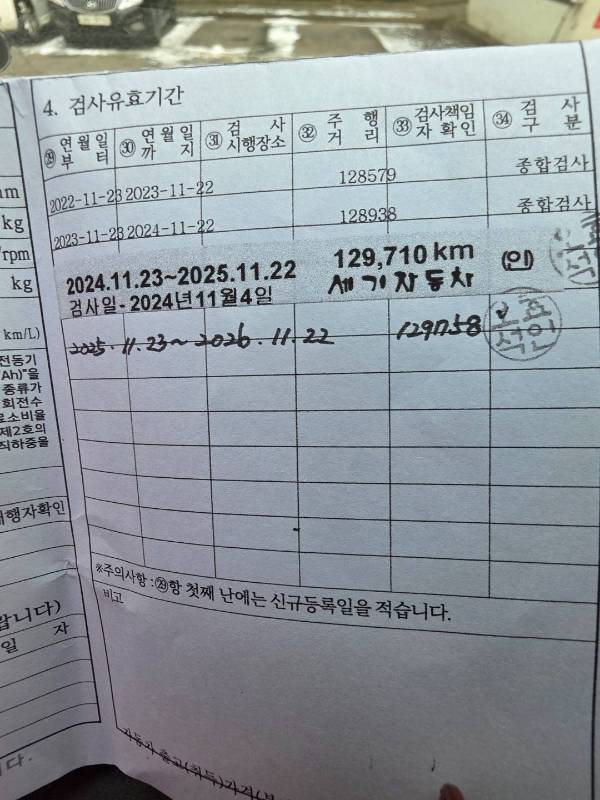 4. 검사유효기간
㉙ 연월일부터 ㉚ 연월일까지 ㉛ 검사시행장소 ㉜ 주행거리 ㉝ 검사책임자확인 ㉞ 검사구분
2022-11-23 2023-11-22 128579 종합검사
2023-11-23 2024-11-22 128938 종합검사
2024.11.23~2025.11.22 129,710 km (인)
검사일 - 2024년11월4일 세기자동차
2025. 11. 23 ~ 2026. 11. 22 129758
※주의사항 : ㉙항 첫째 난에는 신규등록일을 적습니다.
비고
자동차 출고(취득)가격(부
mm
kg
/rpm
kg
km/L)
전동기
Ah)"을
종류가
회전수
료소비율
제2호의
직하중을
행자확인
랍니다)
일 자
니다.